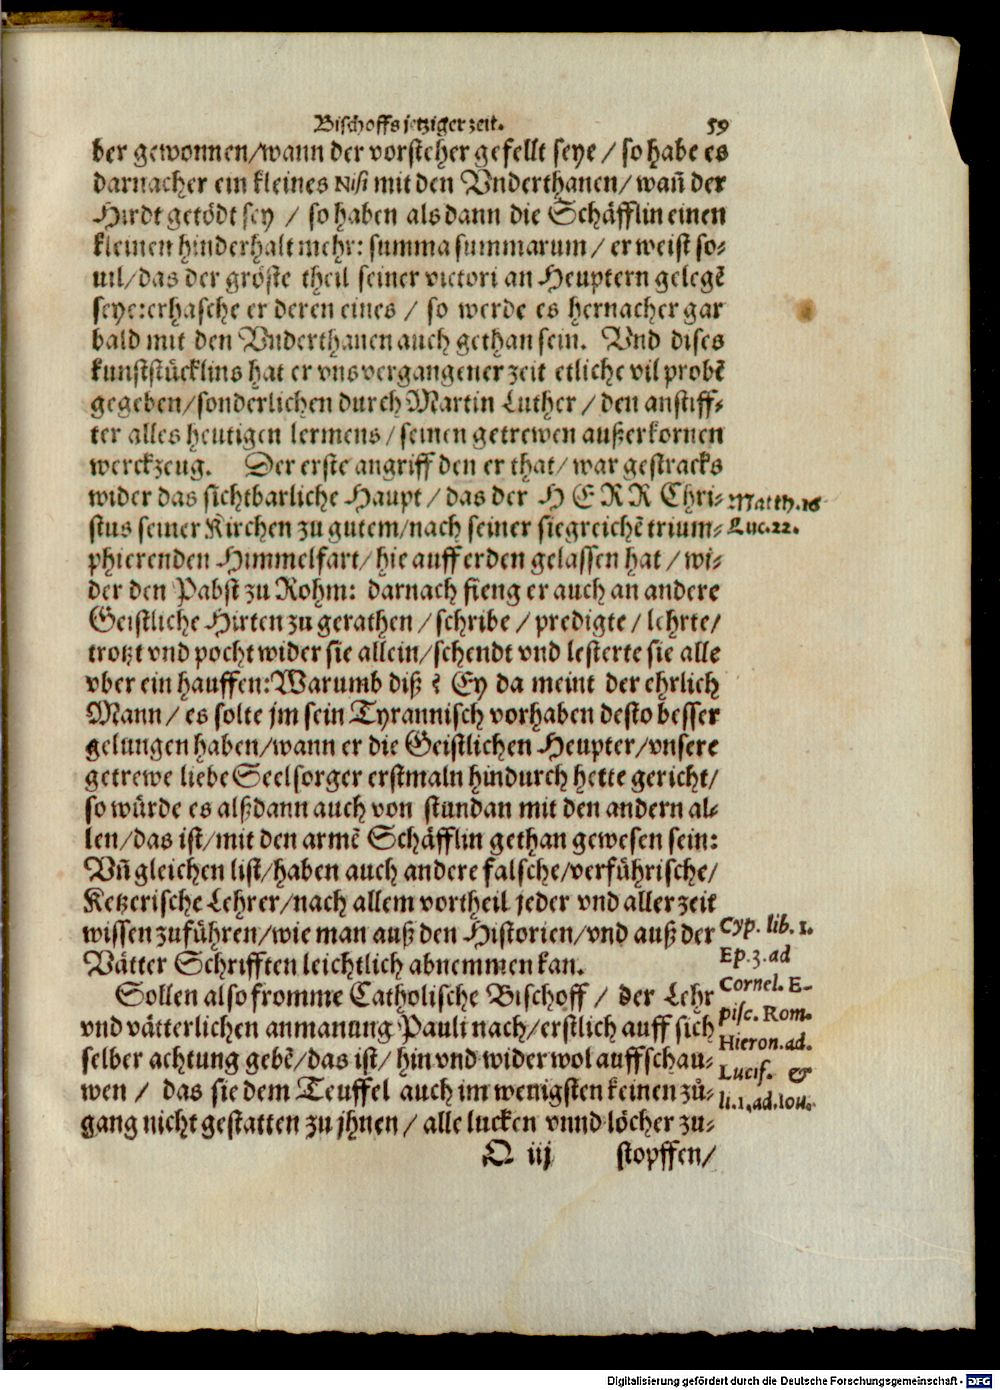 Bischoffs jetziger zeit. 59
ber gewonnen/wann der vorsteher gefellt seye / so habe es
darnacher ein kleines Nisi mit den Vnderthanen/wañ der
Hirdt getödt sey / so haben als dann die Schäfflin einen
kleinen hinderhalt mehr: summa summarum / er weist so-
uil/das der gröste theil seiner victori an Heuptern gelegē
seye:erhasche er deren eines / so werde es hernacher gar
bald mit den Vnderthanen auch gethan sein. Vnd dises
kunststücklins hat er vns vergangener zeit etliche vil probē
gegeben/sonderlichen durch Martin Luther / den anstiff-
ter alles heutigen lermens/seinen getrewen außerkornen
werckzeug. Der erste angriff den er that/war gestracks
wider das sichtbarliche Haupt/das der HERR Chri-
stus seiner Kirchen zu gutem/nach seiner siegreichē trium-
phierenden Himmelfart/hie auff erden gelassen hat / wi-
der den Pabst zu Rohm: darnach fieng er auch an andere
Geistliche Hirten zu gerathen/schribe/predigte/lehrte/
trotzt vnd pocht wider sie allein/schendt vnd lesterte sie alle
vber ein hauffen:Warumb diß? Ey da meint der ehrlich
Mann/es solte jm sein Tyrannisch vorhaben desto besser
gelungen haben/wann er die Geistlichen Heupter/vnsere
getrewe liebe Seelsorger erstmaln hindurch hette gericht/
so würde es alßdann auch von stundan mit den andern al-
len/das ist/mit den armē Schäfflin gethan gewesen sein:
Vñ gleichen list/haben auch andere falsche/verführische/
Ketzerische Lehrer/nach allem vortheil jeder vnd aller zeit
wissen zuführen/wie man auß den Historien/vnd auß der
Vätter Schrifften leichtlich abnemmen kan.
Sollen also fromme Catholische Bischoff / der Lehr
vnd vätterlichen anmanung Pauli nach/erstlich auff sich
selber achtung gebē/das ist/hin vnd wider wol auffschau-
wen / das sie dem Teuffel auch im wenigsten keinen zů-
gang nicht gestatten zu jhnen / alle lucken vnnd löcher zu-
Q iij stopffen/
Matth.16
Luc.22.
Cyp. lib. 1.
Ep.3.ad
Cornel. E-
pisc. Rom.
Hieron.ad.
Lucif. &
li.1.ad.Iou.
Digitalisierung gefördert durch die Deutsche Forschungsgemeinschaft - DFG